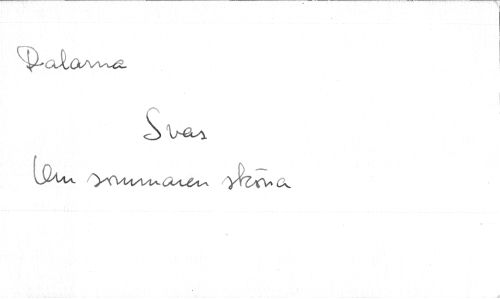 Dalarna
Svas
Om sommaren sköna